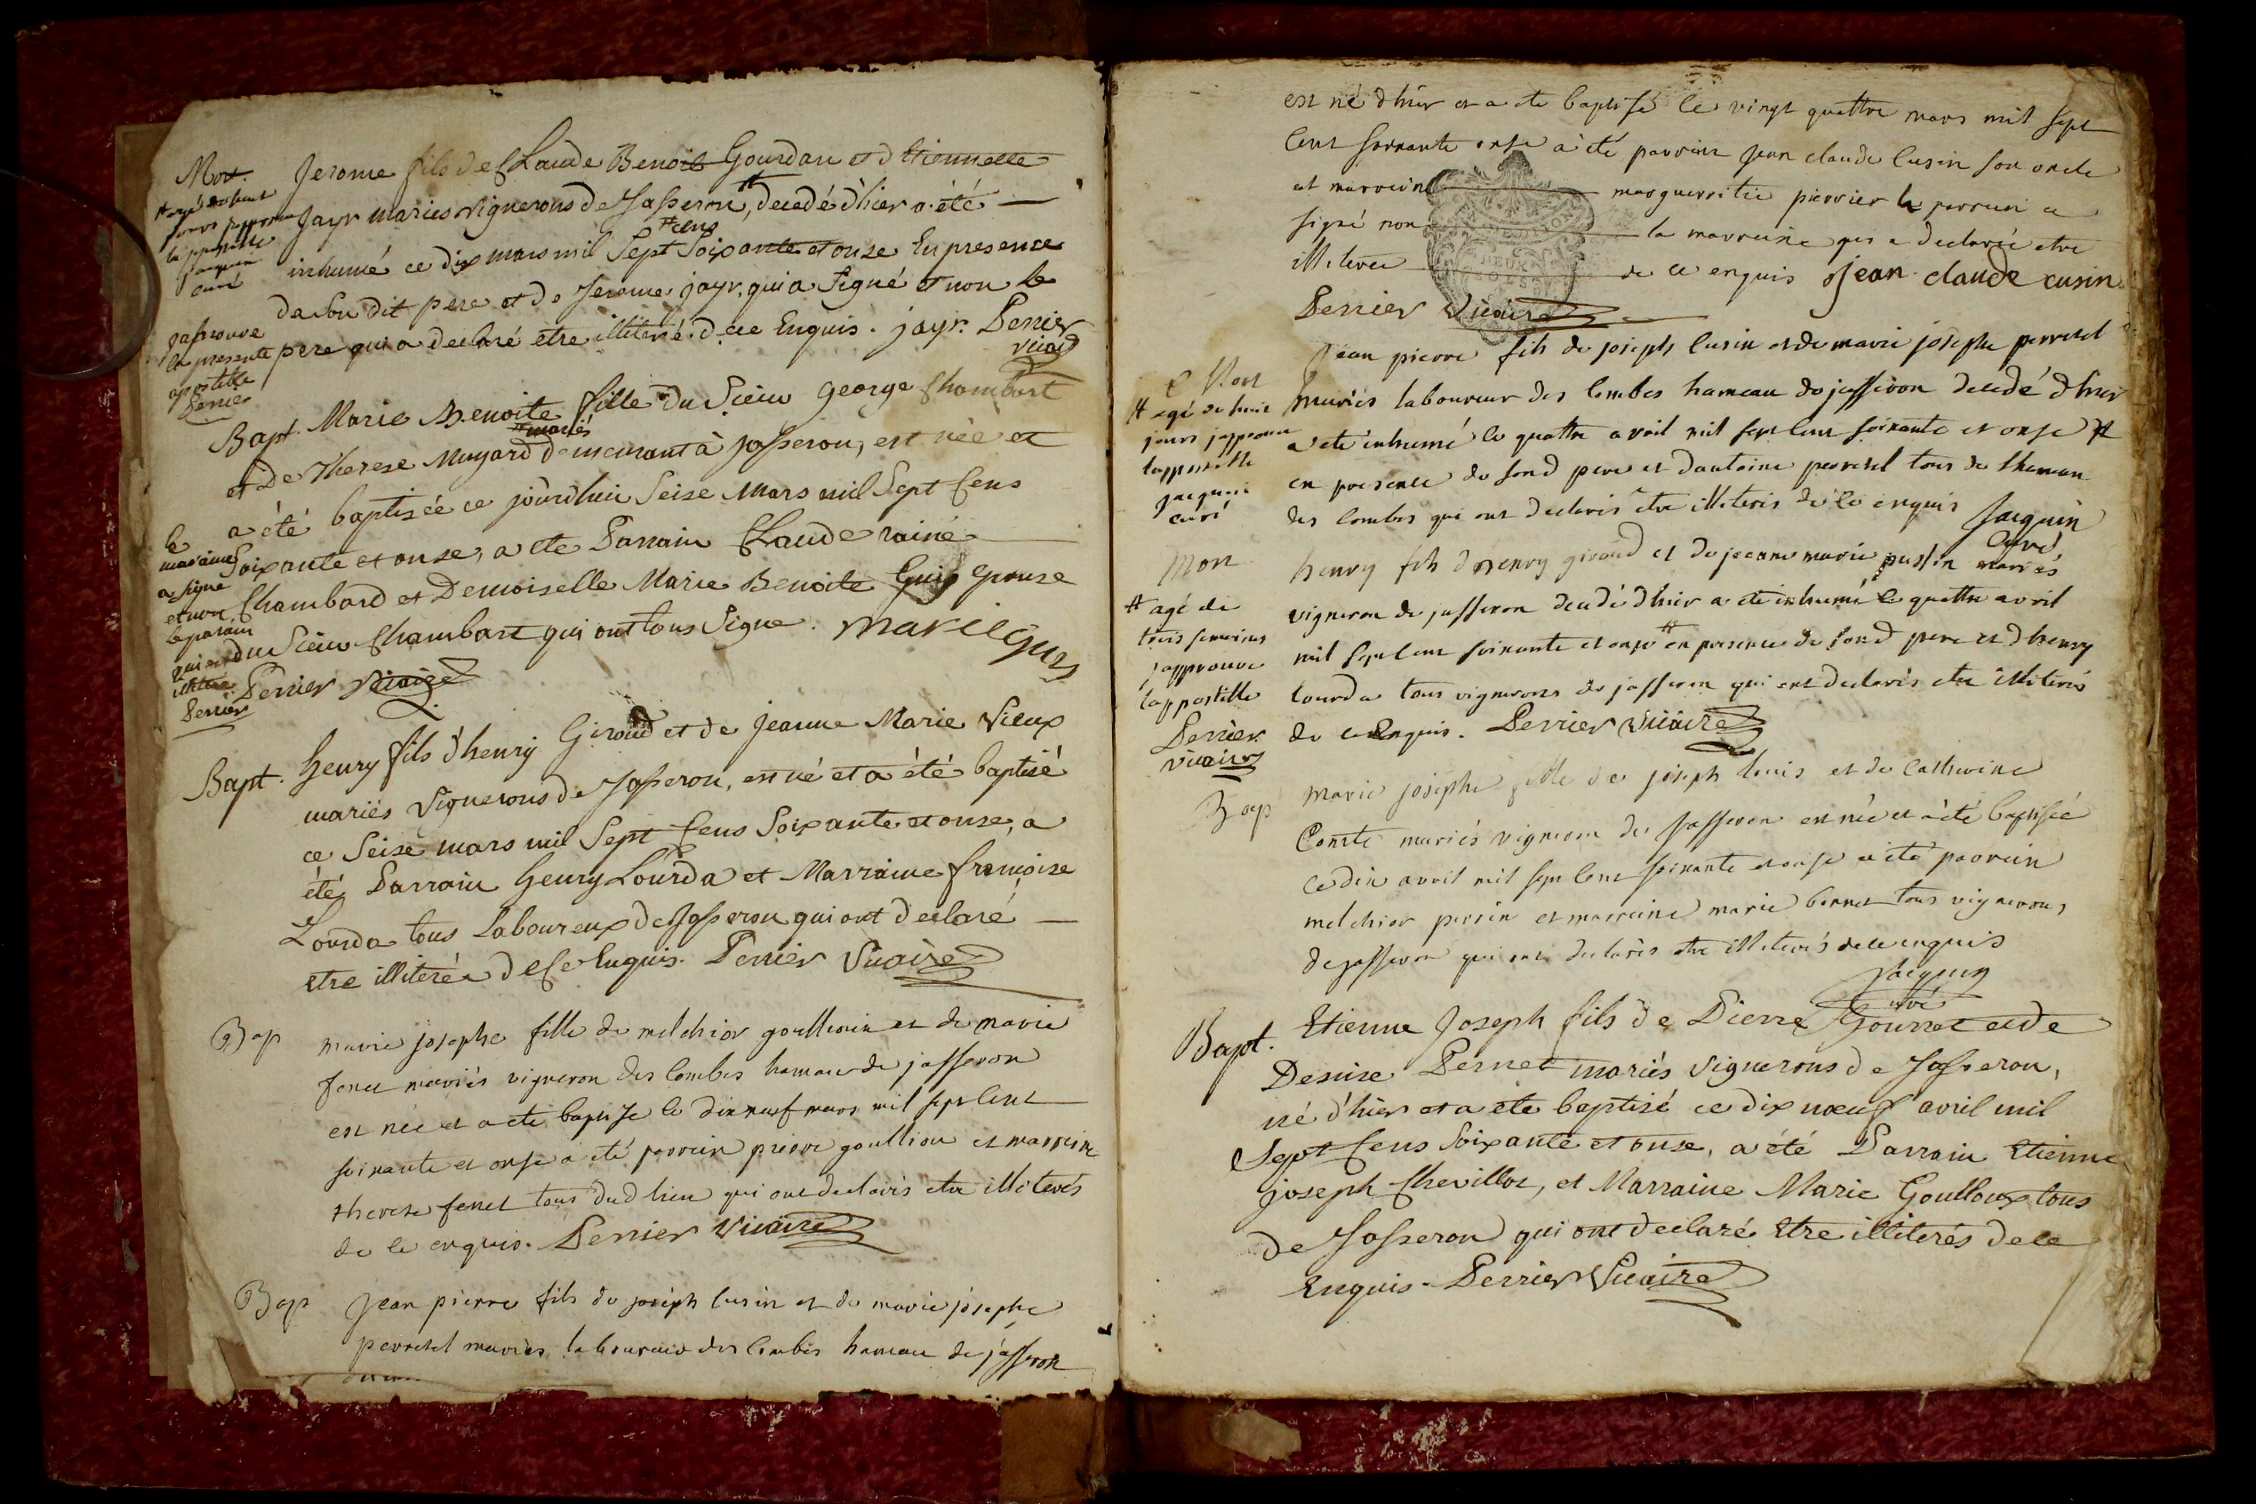 Mort. Jerome fils de Claude Benoit Gourdan et d'Etiennette
Jayr mariés vignerons de Jasseron, decedé d'hier a été
# cens
inhumé ce dix mars mil Sept Soixante et onze En presence
de Son dit pere et de Jerome jayr, qui a Signé et non le
pere qui a declaré etre illiteré. de ce Enquis. jayr. Perrier
vicaire
jours j'approuve
la postille
jacquin
curé
j'approuve
la presente
apostille
Perrier
Bapt. Marie Benoite fille du Sieur George Chambart
# mariés
et de Therese Mugard demeurant à Jasseron, est née et
a été baptisée ce jourdhui Seise Mars mil Sept Cens
Soixante et onse, a ete Parrain Claude rainé
Chambard et Demoiselle Marie Benoite Guis Epouse
du Sieur Chambart qui ont tous Signe. marie guis
Perrier Vicaire
la
maraine
a signe
et non
le parain
qui est
illitere
Perrier
Bapt. henry fils d'henry Giroud et de Jeanne Marie Vieux
mariés Vignerons de Jasseron, est né et a été baptisé
ce Seise mars mil Sept Cens Soixante et onse, a
été Parrain henry Lourda et Marraine françoise
Lourda tous Laboureux de Jasseron qui ont declaré
etre illiterés de ce Enquis. Perrier Vicaire
Bap marie josephe fille de melchior goullion et de marie
fenet mariés vigneron des Combes hameau de jasseron
est née et a ete baptise le dixneuf mars mil sept Cent
soixante et onse a été parrein pierre goullion et marreine
therese fenet tous dud lieu qui ont declarés etre illiterés
de ce enquis. Perrier Vicaire
Bap jean pierre fils de joseph Cusin et de marie josephe
perretel mariés laboureur des Combes hameau de jasseron
est né d'hier et a ete baptisé le vingt quattre mars mil sept
Cent soixante onse a été parrein jean claude Cusin son oncle
et marreine margueritte pierrier le parrein a
signé non la marreine qui a declarée etre
illiterée de ce enquis jean claude cusin
Perrier Vicaire
Mort
jean pierre fils de joseph Cusin et de marie josephe perretel
mariés laboureur des Combes hameau de jasseron decedé d'hier
a ete inhumé le quattre avril mil sept Cent soixante et onse #
en presence de sond pere et d'antoine perretel tous du hameau
des Combes qui ont declarés etre illiterés de ce enquis Jacquin
Curé
# agé de huit
jours j'approuve
lappostille
jacquin
curé
Mort henry fils d'henry giroud et de jeanne marie mariés
vigneron de jasseron decedé d'hier a ete inhumé le quattre avril
mil sept Cent soixante et onse # en presence de sond pere et d'henry
Lourda tous vignerons de jasseron qui ont declarés etre illiterés
de ce Enquis. Perrier Vicaire
# agé de
trois semaines
j'approuve
lappostille
Perrier
vicaire
Bap marie josephe fille de joseph et de Catherine
Comte mariés vigneron de Jasseron est née et a été baptisée
ce dix avril mil sept Cent soixante et onse a été parrein
melchior perrin et marreine marie bornet tous vignerons
de jasseron qui ont declarés etre illiterés de ce enquis
Jacquin
curé
Bapt. Etienne Joseph fils de Pierre Gourret et de
Denise Pernet mariés Vignerons de Jasseron,
né d'hier et a ete baptisé ce dix nœuf avril mil
Sept Cens Soixante et onse, a été Parrain Etienne
joseph Chevillot, et Marraine Marie Goulloux tous
de Jasseron qui ont declaré Etre illiterés de ce
Enquis. Perrier Vicaire